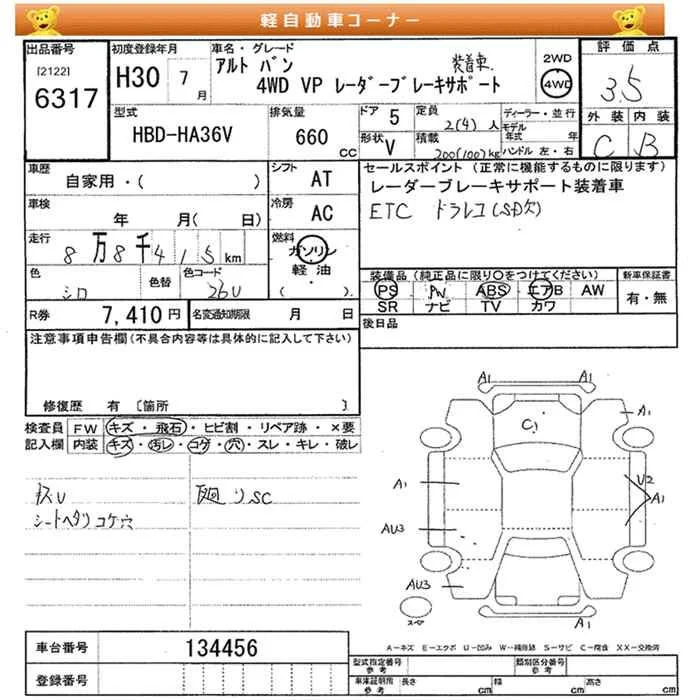 軽自動車コーナー
出品番号
[2122]
6317
初度登録年月
H30 7月
車名・グレード
アルト バン 装着車
4WD VP レーダーブレーキサポート
2WD
4WD
評価点
3.5
外装 内装
C B
型式
HBD-HA36V
排気量
660 CC
ドア 5
形状 V
定員 2(4)人
積載 200(100)kg
ディーラー・並行
モデル年式 年
ハンドル 左・右
車歴
自家用・( )
シフト AT
車検
年 月( 日)
冷房 AC
走行
8万8千415km
燃料
ガソリン
軽油
( )
色
シロ
色替
色コード
26U
R券 7,410円
名変通知期限 月 日
セールスポイント(正常に機能するものに限ります)
レーダーブレーキサポート装着車
ETC ドラレコ(SD欠)
装備品(純正品に限り〇をつけてください)
PS PW ABS エアB AW
SR ナビ TV カワ
新車保証書
有・無
後日品
注意事項申告欄(不具合内容等は具体的に記入して下さい)
修復歴 有 〔箇所 〕
検査員記入欄
FW キズ・飛石・ヒビ割・リペア跡・×要
内装 キズ・汚レ・コゲ・穴・スレ・キレ・破レ
シートヘタリコゲ穴
廻りSC
A1 A1
A1
C1
A1
U2
A1
AU3
AU3
スペア
A1
A=キズ E=エクボ U=凹み W=補修跡 S=サビ C=腐食 XX=交換済
車台番号 134456
登録番号
型式指定番号 参考
類別区分番号 参考
車庫証明用 参考
長さ cm
幅 cm
高さ cm